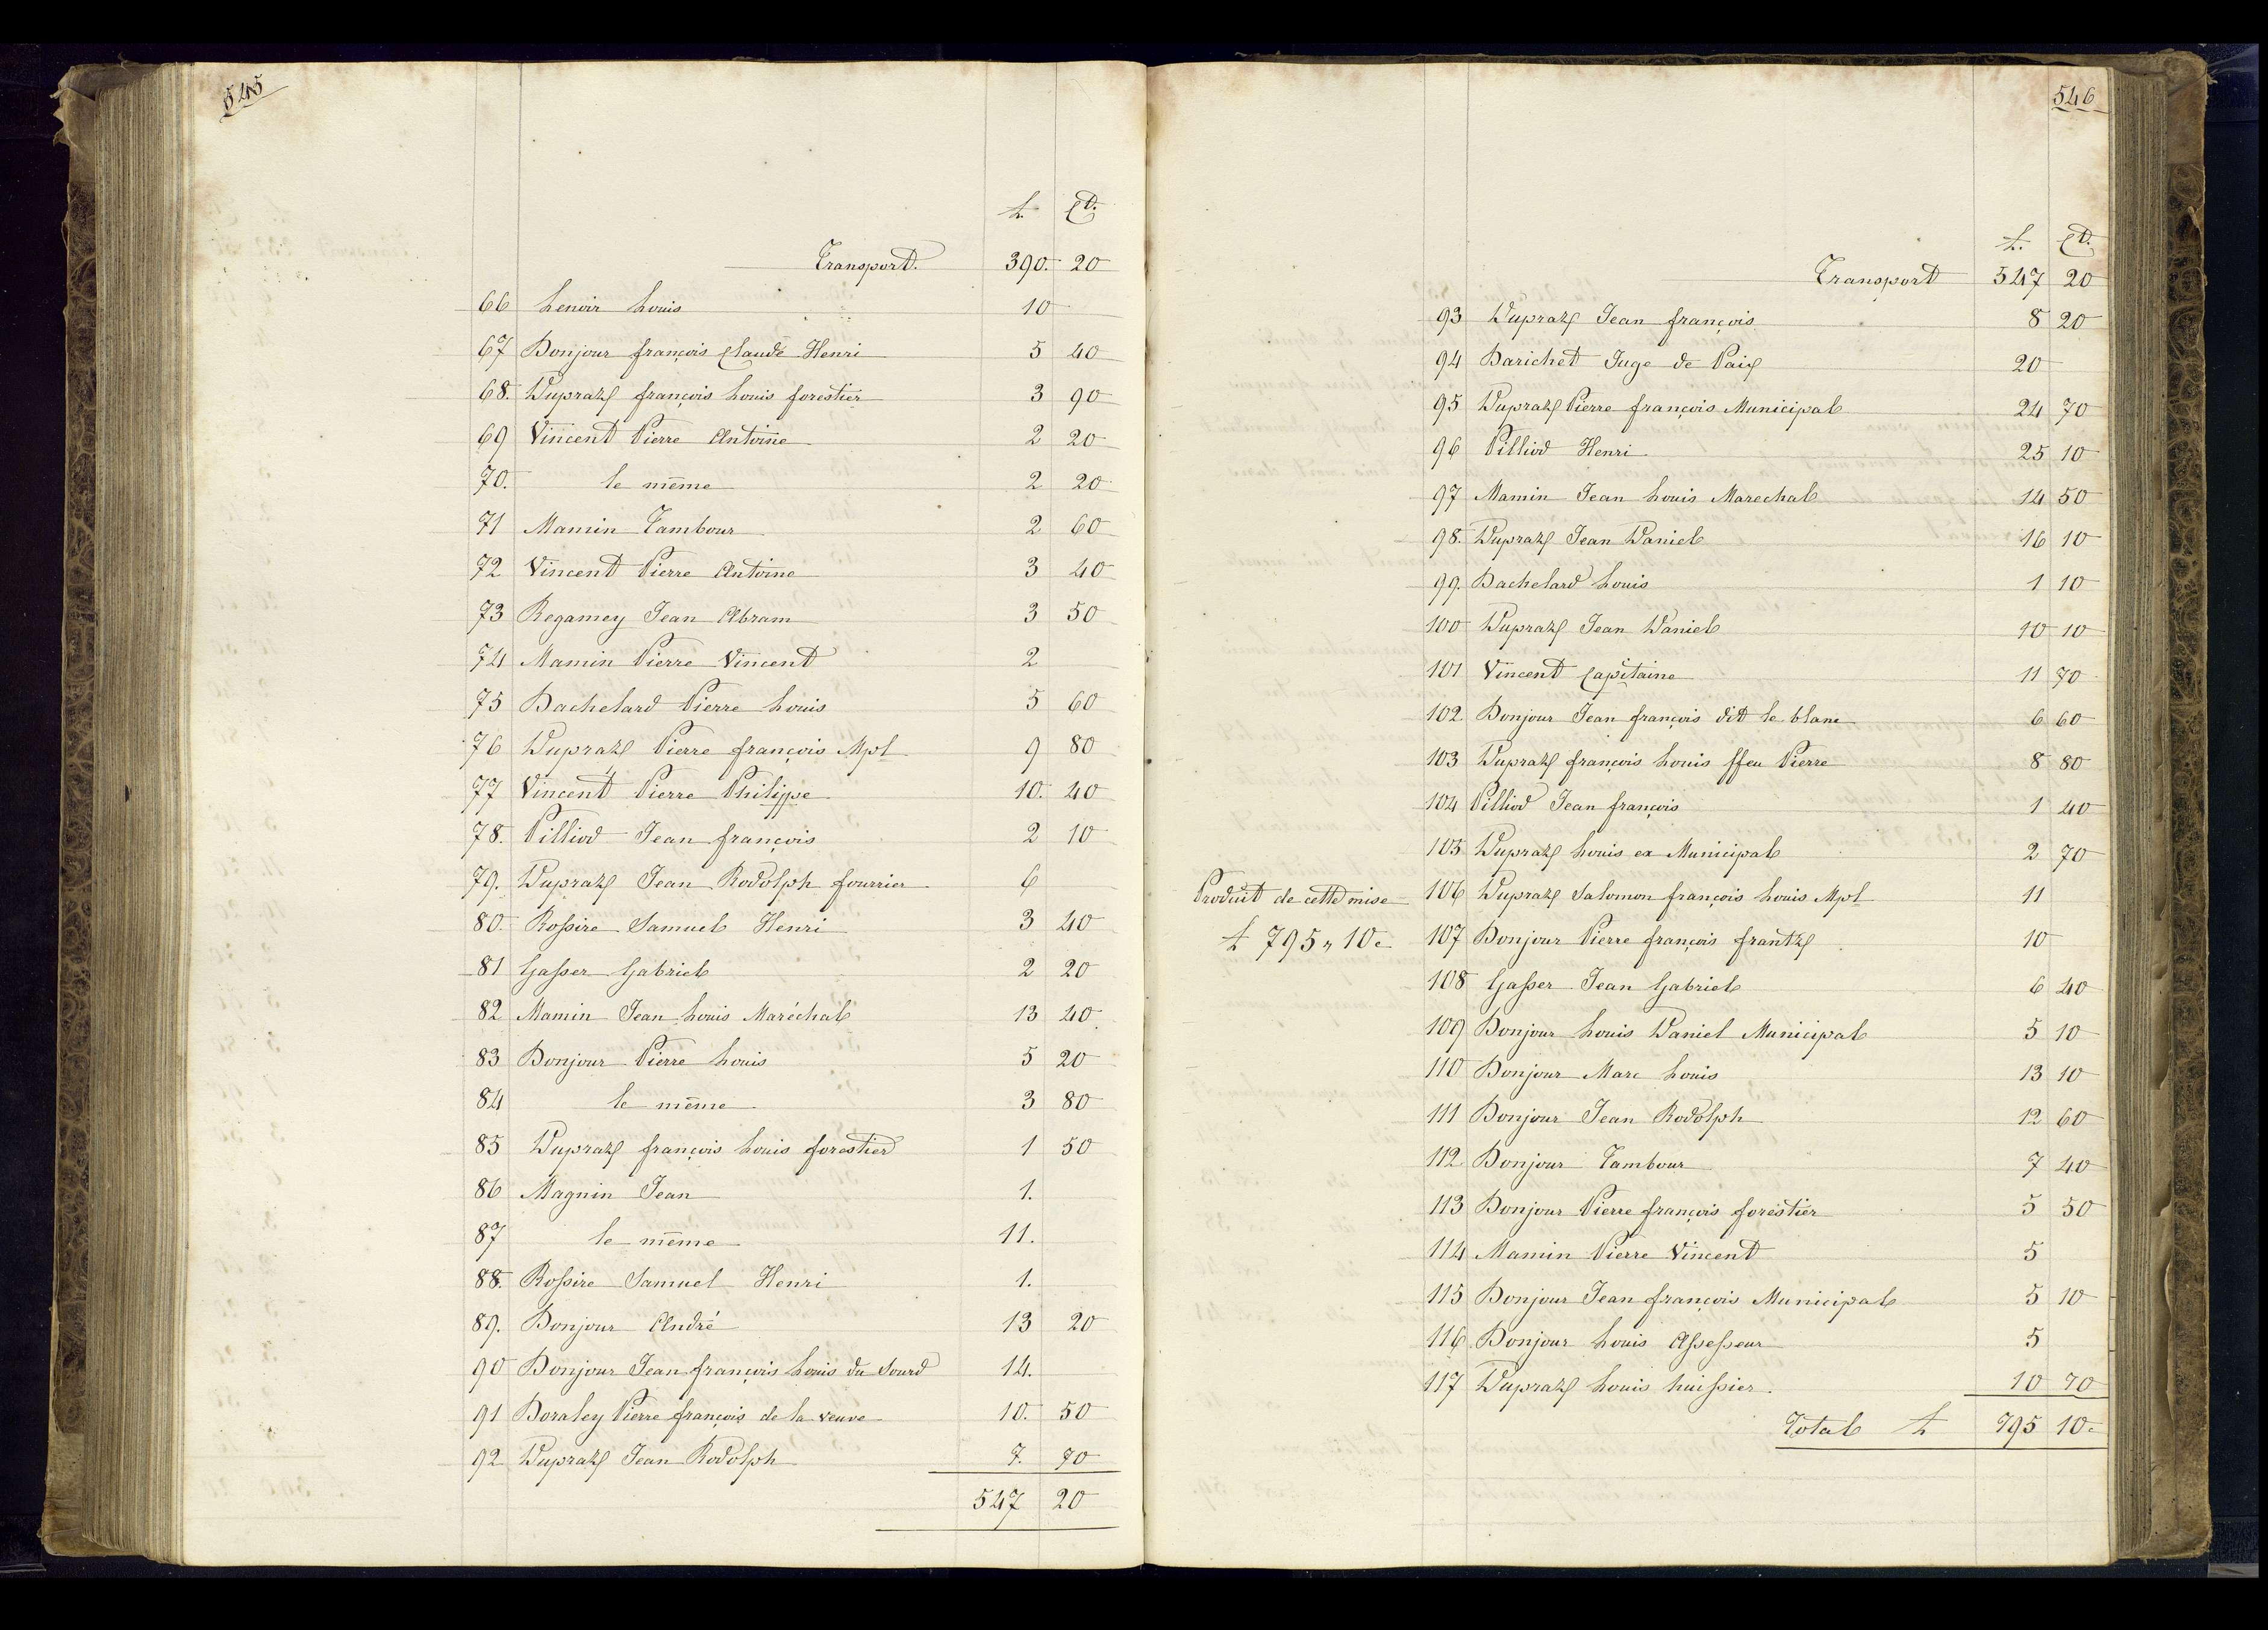 545
£. Ct.
Transport. 390. 20
66 Lenoir Louis 10
67 Bonjour françois Claude Henri 5 40
68. Dupraz françois Louis forestier 3 90
69 Vincent Pierre Antoine 2 20
70. le même 2 20
71 Mamin Tambour 2 60
72 Vincent Pierre Antoine 3 40
73 Regamey Jean Abram 3 50
74 Mamin Pierre Vincent 2
75 Bachelard Pierre Louis 5 60
76 Dupraz Pierre françois Mpl 9 80
77 Vincent Pierre Philippe 10. 40
78. Pilliod Jean françois 2 10
79. Dupraz Jean Rodolph fourrier 6
80. Rossire Samuel Henri 3 40
81 Gasser Gabriel 2 20
82 Mamin Jean Louis Maréchal 13 40
83 Bonjour Pierre Louis 5 20
84 le même 3 80
85 Dupraz françois Louis forestier 1 50
86 Magnin Jean 1.
87 le même 11.
88. Rossire Samuel Henri 1.
89. Bonjour André 13 20
90 Bonjour Jean françois Louis du Sourd 14.
91 Doraley Pierre françois de la veuve 10. 50
92 Dupraz Jean Rodolph 7. 70
547 20
546
£. Ct.
Transport 547 20
93 Dupraz Jean françois 8 20
94 Barichet Juge de Paix 20
95 Dupraz Pierre françois Municipal 24 70
96 Pilliod Henri 25 10
97 Mamin Jean Louis Marechal 14 50
98. Dupraz Jean Daniel 16 10
99. Bachelard Louis 1 10
100 Dupraz Jean Daniel 10 10
101 Vincent Capitaine 11 70
102 Bonjour Jean françois dit le blanc 6 60
103 Dupraz françois Louis ffeu Pierre 8 80
104 Pilliod Jean françois 1 40
105 Dupraz Louis ex Municipal 2 70
Produit de cette mise 106 Dupraz Salomon françois Louis Mpl 11
£ 795 " 10 c. 107 Bonjour Pierre françois frantz 10
108 Gasser Jean Gabriel 6 40
109 Bonjour Louis Daniel Municipal 5 10
110 Bonjour Marc Louis 13 10
111 Bonjour Jean Rodolph 12 60
112 Bonjour Tambour 7 40
113 Bonjour Pierre françois forestier 5 50
114 Mamin Pierre Vincent 5
115 Bonjour Jean françois Municipal 5 10
116 Bonjour Louis Assesseur 5
117 Dupraz Louis huissier 10 70
Total £ 795 10.